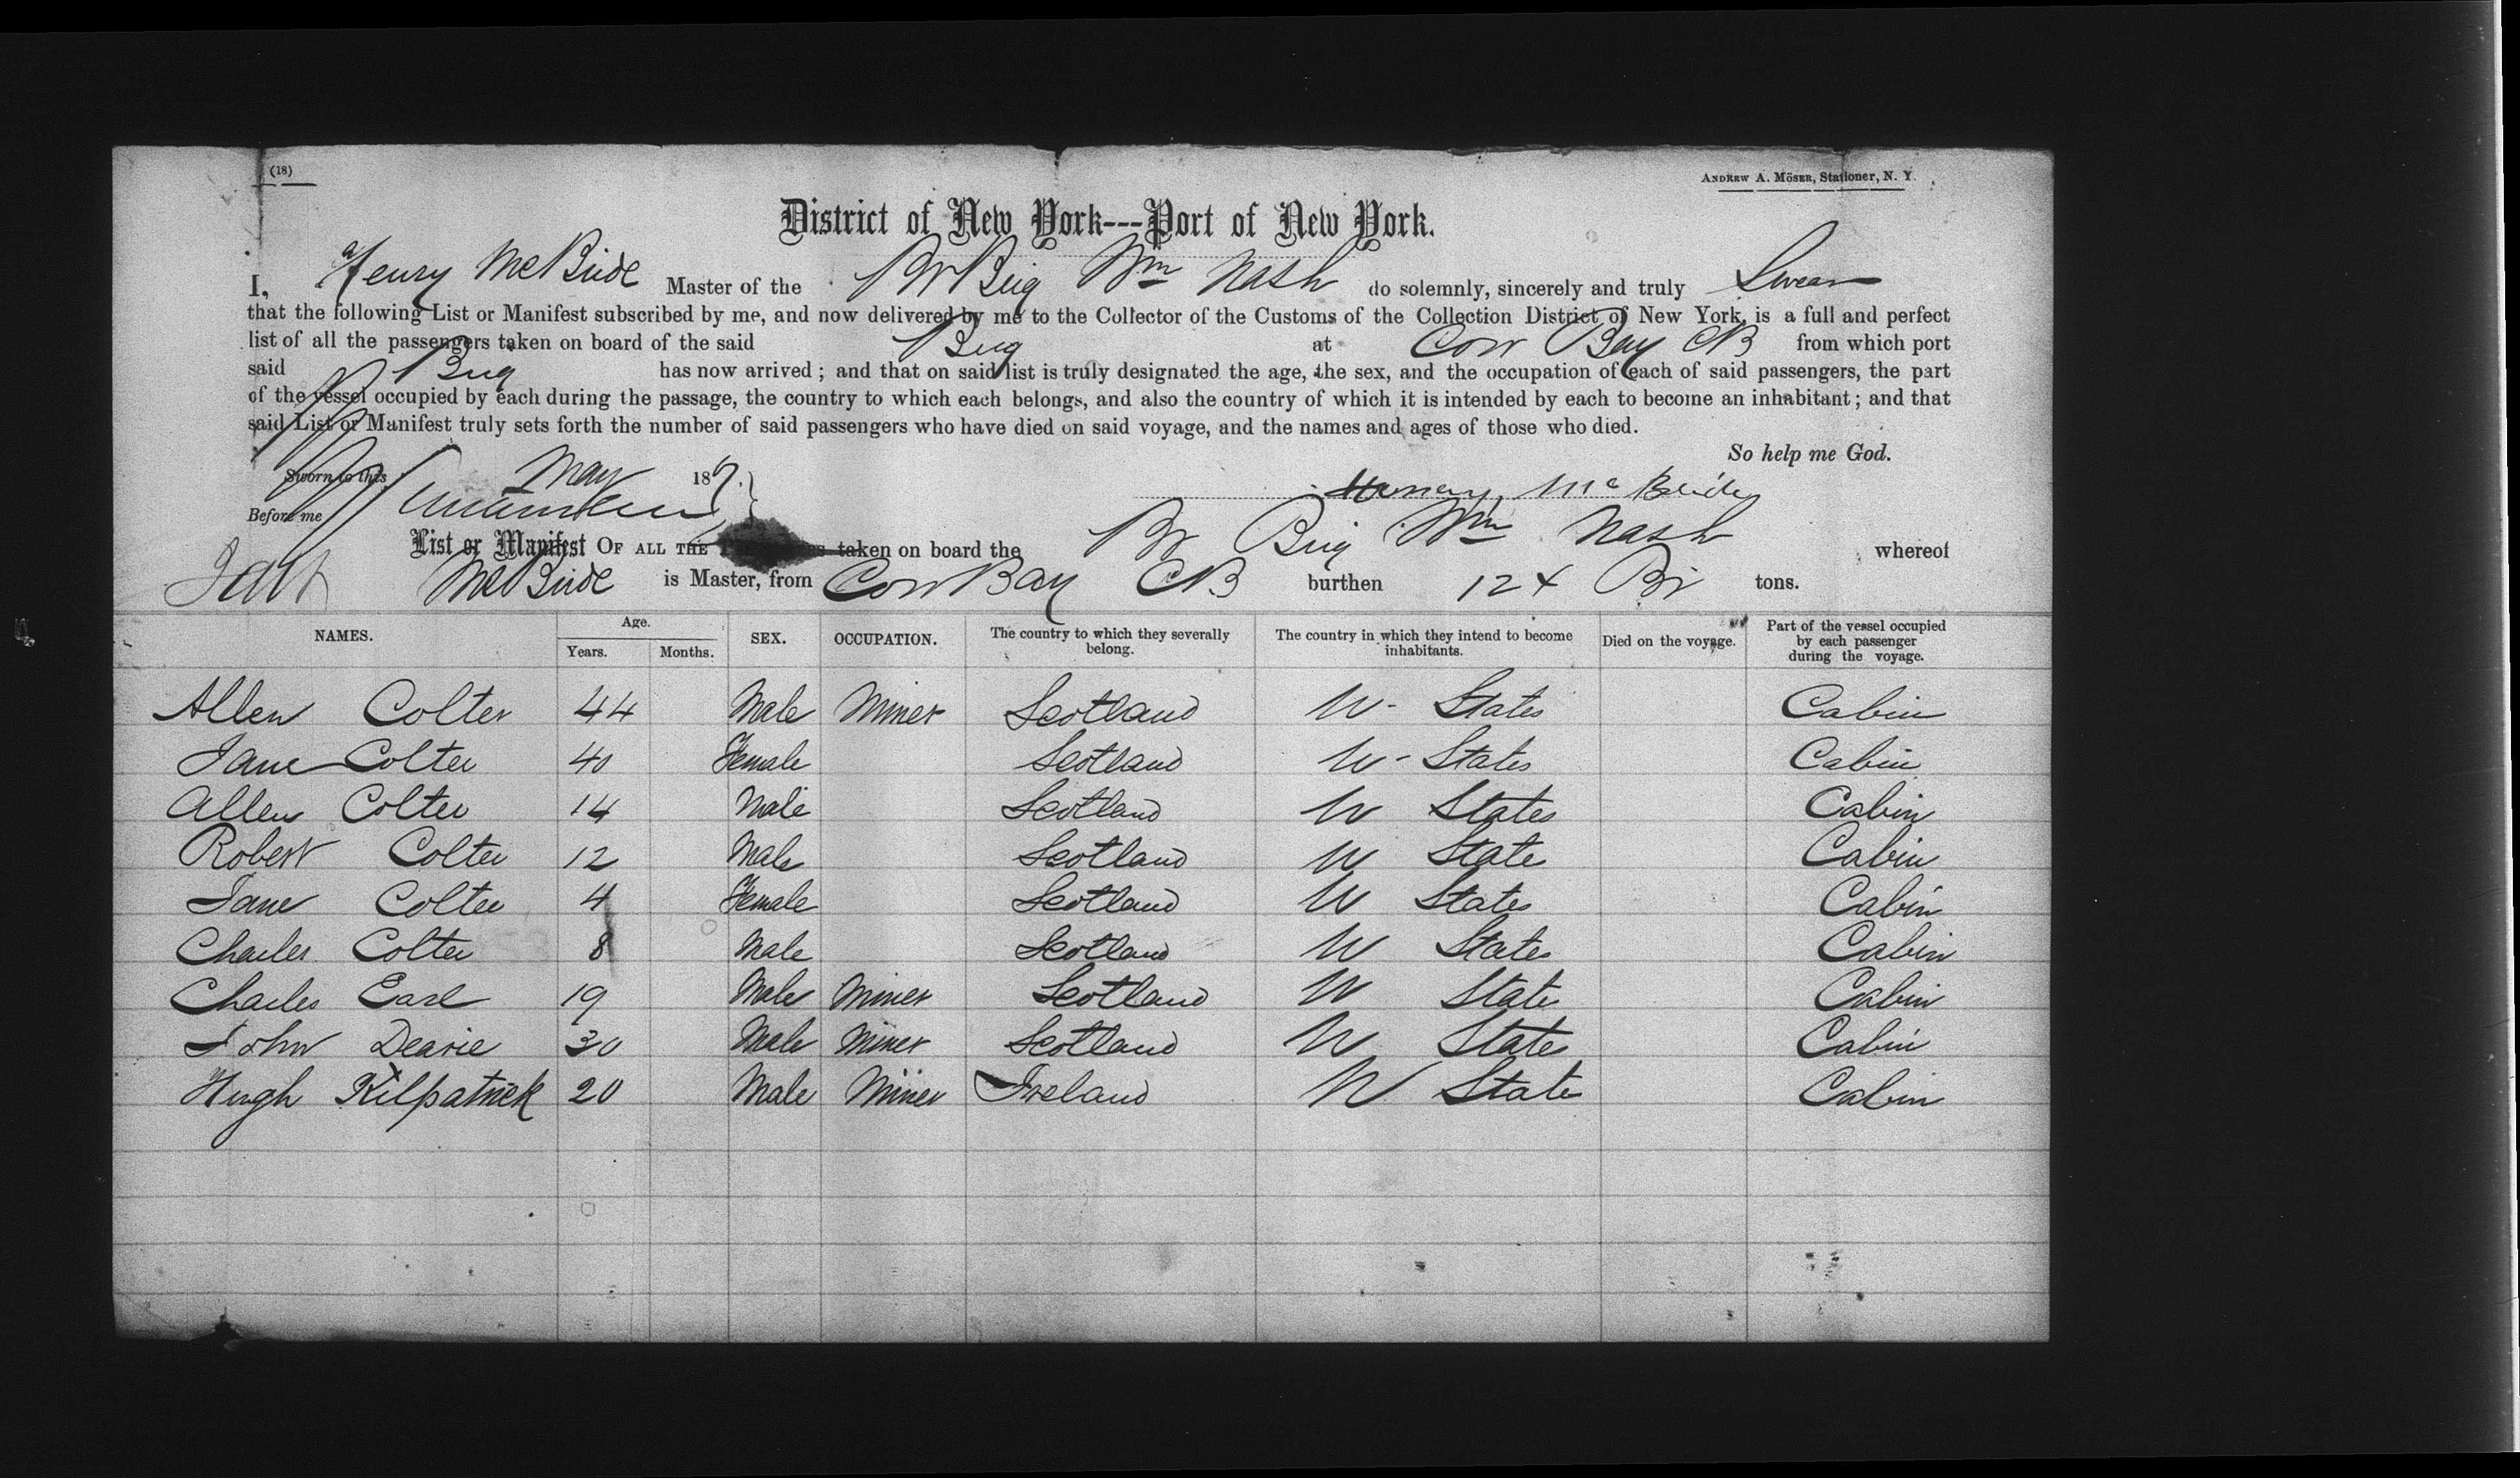 (18)
ANDREW A. MÖSER, Stationer, N. Y.
District of New York---Port of New York.
I, Henry McBride Master of the Br Brig Wm Nash do solemnly, sincerely and truly Swear
that the following List or Manifest subscribed by me, and now delivered by me to the Collector of the Customs of the Collection District of New York, is a full and perfect
list of all the passengers taken on board of the said Brig at Cow Bay CB from which port
said Brig has now arrived; and that on said list is truly designated the age, the sex, and the occupation of each of said passengers, the part
of the vessel occupied by each during the passage, the country to which each belongs, and also the country of which it is intended by each to become an inhabitant; and that
said List or Manifest truly sets forth the number of said passengers who have died on said voyage, and the names and ages of those who died.
So help me God.
Sworn to this May 187 Henry McBride
Before me
List or Manifest OF ALL THE taken on board the Br Brig Wm Nash whereof
McBride is Master, from Cow Bay CB burthen 124 Br tons.
NAMES. Age. Years. Months. SEX. OCCUPATION. The country to which they severally belong. The country in which they intend to become inhabitants. Died on the voyage. Part of the vessel occupied by each passenger during the voyage.
Allen Colter 44 Male Miner Scotland U- States Cabin
Jane Colter 40 Female Scotland U- States Cabin
Allen Colter 14 Male Scotland U States Cabin
Robert Colter 12 Male Scotland U State Cabin
Jane Colter 4 Female Scotland U States Cabin
Charles Colter 8 Male Scotland U States Cabin
Charles Earl 19 Male Miner Scotland U State Cabin
John Dearie 30 Male Miner Scotland U States Cabin
Hugh Kilpatrick 20 Male Miner Ireland U State Cabin